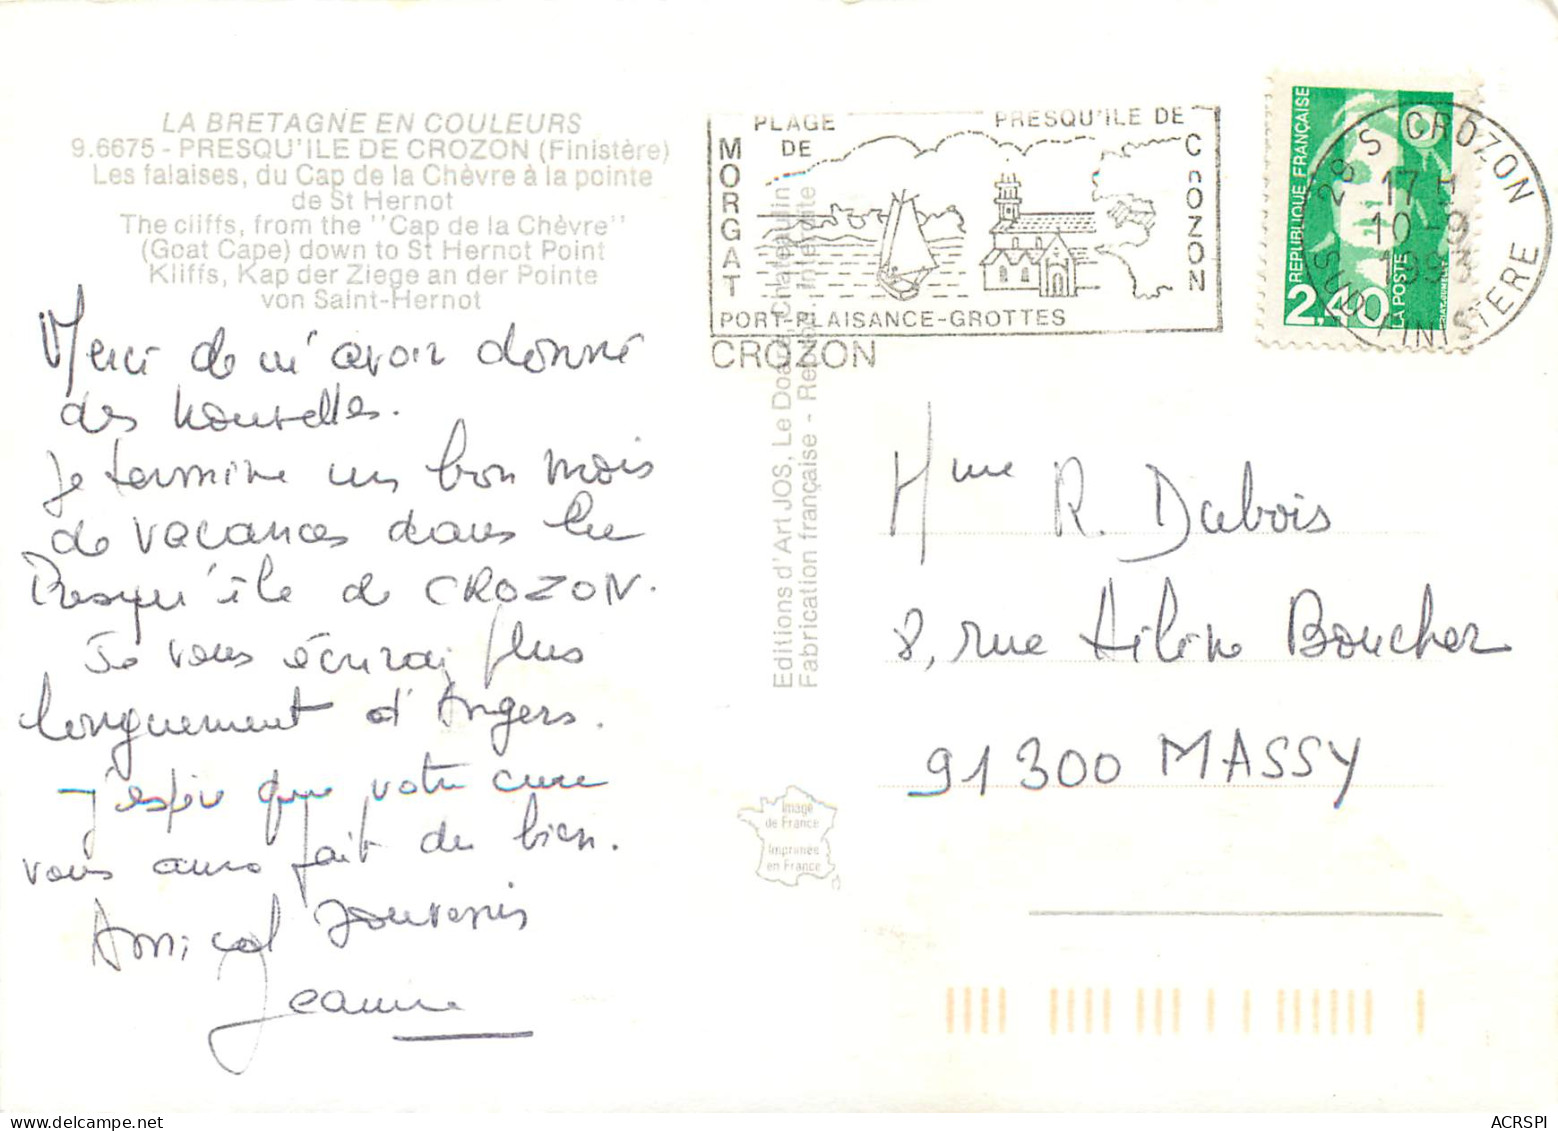 LA BRETAGNE EN COULEURS
9.6675 - PRESQU'ILE DE CROZON (Finistère)
Les falaises, du Cap de la Chèvre à la pointe
de St Hernot
The cliffs, from the "Cap de la Chèvre"
(Goat Cape) down to St Hernot Point
Kliffs, Kap der Ziege an der Pointe
von Saint-Hernot
Merci de m'avoir donné
des nouvelles.
Je termine un bon mois
de vacances dans la
Presqu'île de CROZON.
Je vous écrirai plus
longuement d'Angers.
J'espère que votre cure
vous aura fait du bien.
Amical souvenir
Jeanne
PLAGE DE MORGAT
PRESQU'ILE DE CROZON
PORT-PLAISANCE-GROTTES
CROZON
REPUBLIQUE FRANÇAISE
2,40
LA POSTE
28 S CROZON
17 H
10-9
1993
SUD-FINISTERE
Editions d'Art JOS, Le Doaré, Châteaulin
Fabrication française - Reprod. interdite
Mme R. Dubois
8, rue Hélène Boucher
91300 MASSY
Image
de France
Imprimée
en France
ACRSPI